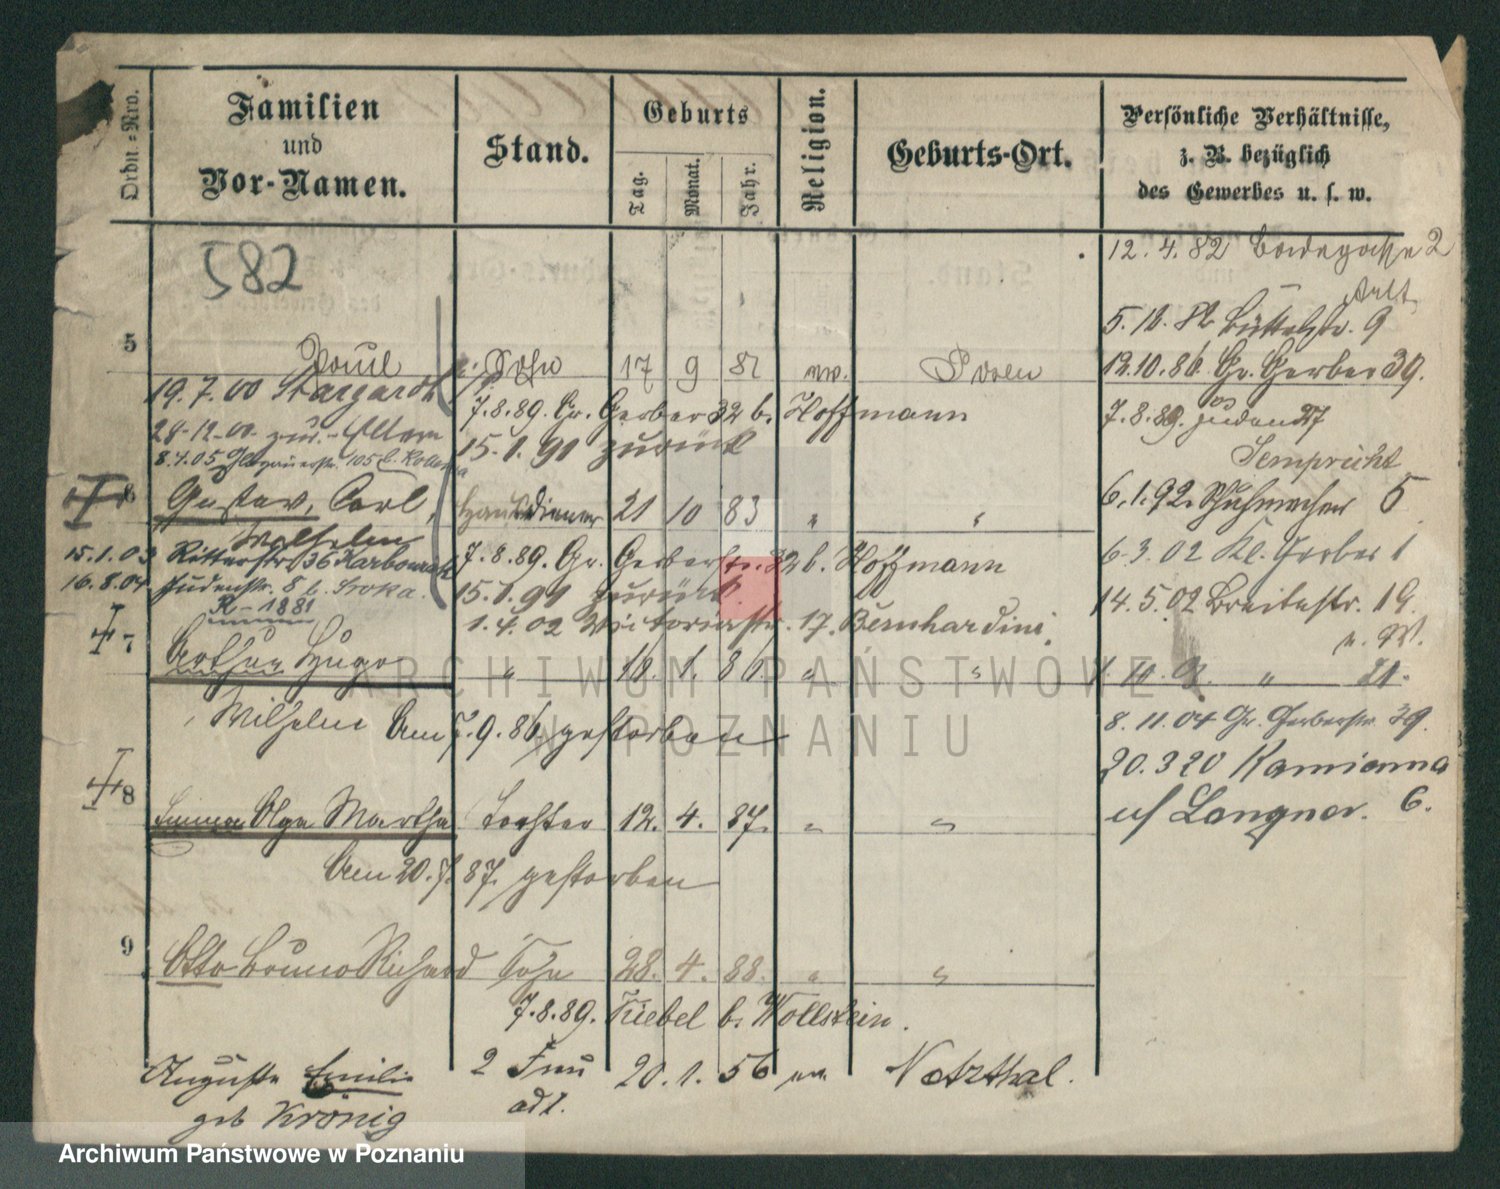 Ordn.-Nro.
Familien
und
Vor-Namen.
Stand.
Geburts
Tag.
Monat.
Jahr.
Religion.
Geburts-Ort.
Persönliche Verhältnisse,
z. B. bezüglich
des Gewerbes u. s. w.
582
12.4.82 2
5.12.82 Büttelstr. 9
5 Paul Sohn 17 9 81 ev. Posen
12.10.86 Gr. Gerber 39.
19.7.00 Stargardt
7.8.89. Gr. Gerber 32 b. Hoffmann
7.8.89. Juden 27
28-12-00. zur. Eltern
15.1.91 zurück
8.4.05 Glogauerstr. 105 b.
Sempricht
6 Gustav, Carl, Hausdiener 21 10 83 " "
Wilhelm
6.1.92. Schuhmacher 5
15.1.03 Ritterstr. 36 Karbowiak
7.8.89. Gr. Gerberstr. 32 b. Hoffmann
6.3.02 Kl. Gerber 1
16.8.04. Judenstr. 8 b. Sroka.
15.1.91 zurück
14.5.02 Breitestr. 19.
R-1881
1.4.02 Victoriastr. 17. Bernhardini.
n. W.
7 Arthur Hugo " 18. 1. 86 " "
" 21.
Wilhelm Am 7.9.86. gestorben
8.11.04 Gr. Gerberstr. 39.
20.3 20 Kamionna
b/ Langner. 6.
8 Emma Olga Martha Tochter 12. 4. 87. " "
Am 20.7.87. gestorben
9 Otto Bruno Richard Sohn 28. 4. 88. " "
7.8.89. Kiebel b. Wollstein.
Auguste Emilie 2 Frau 20.1.56 ev. Netzthal.
geb Krönig ad 1.
ARCHIWUM PAŃSTWOWE
W POZNANIU
Archiwum Państwowe w Poznaniu